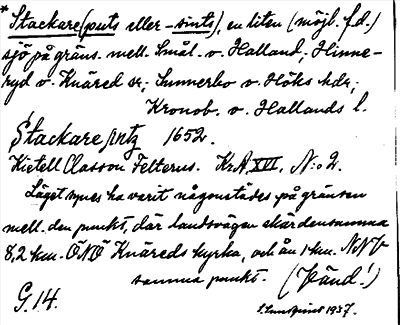 * Stackare (puts eller -vints), en liten (möjl. f.d.)
sjö på gräns. mell. Smål. o. Halland; Hinne-
ryd o. Knäred sr; Sunnerbo o. Höks hdr;
Kronob. o. Hallands l.
Stackare putz 1652.
Kietell Classon Felterus. KrA XVI, N:o 2.
Läget synes ha varit någonstädes på gränsen
mell. den punkt, där landsvägen skär densamma
8,2 km. ÖNÖ Knäreds kyrka, och ån 1 km. NNV
samma punkt. (Händ!)
G. 14. 1937.